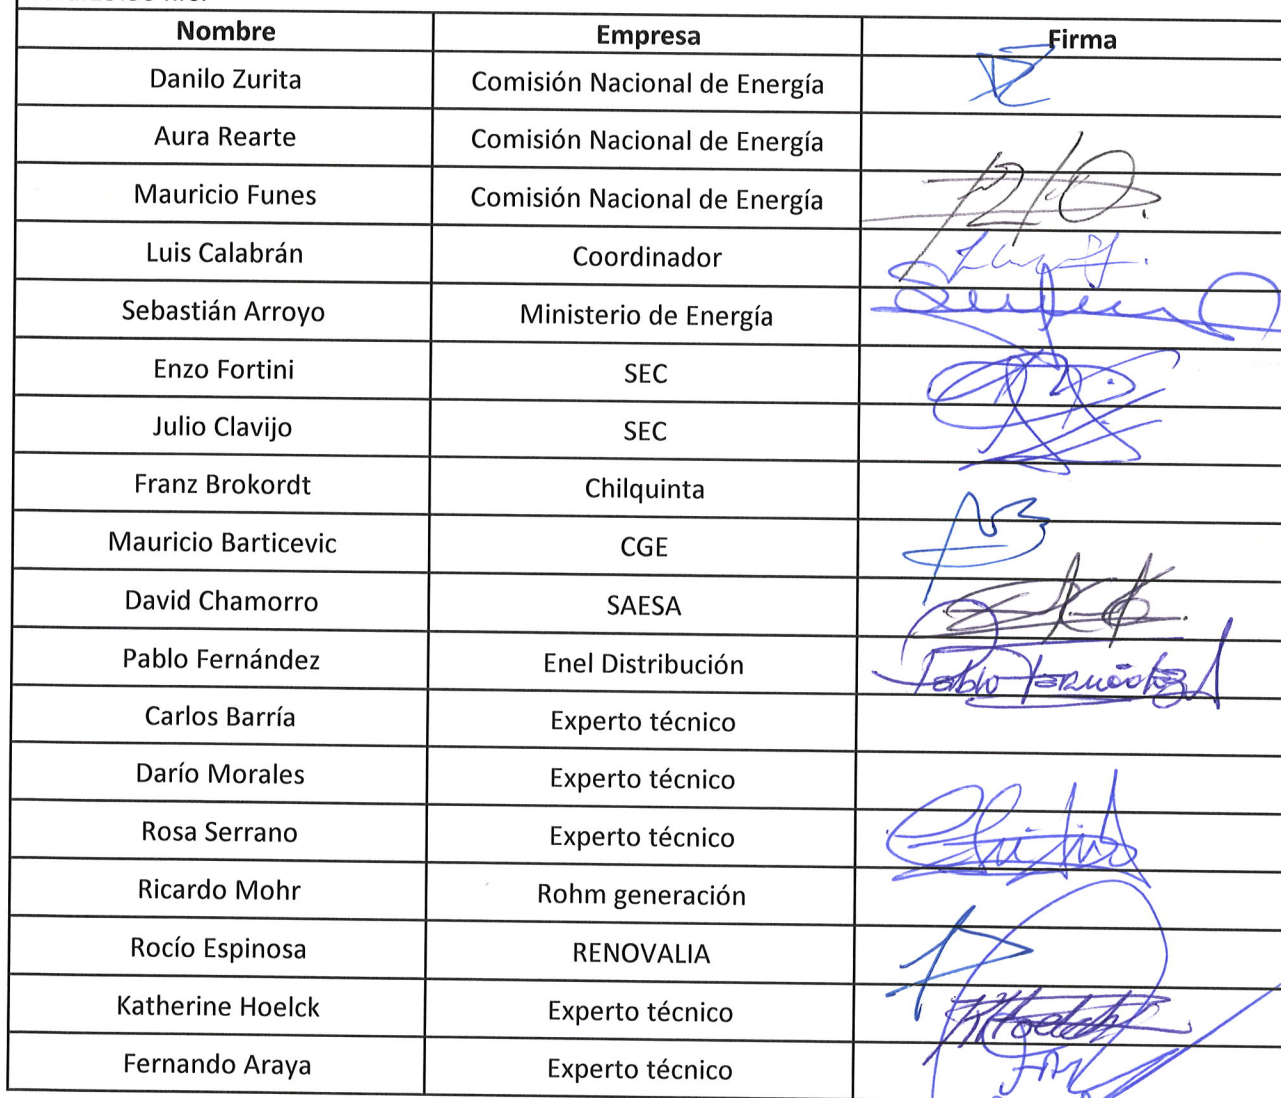 Nombre Empresa Firma
Danilo Zurita Comisión Nacional de Energía
Aura Rearte Comisión Nacional de Energía
Mauricio Funes Comisión Nacional de Energía
Luis Calabrán Coordinador
Sebastián Arroyo Ministerio de Energía
Enzo Fortini SEC
Julio Clavijo SEC
Franz Brokordt Chilquinta
Mauricio Barticevic CGE
David Chamorro SAESA
Pablo Fernández Enel Distribución Pablo Fernández
Carlos Barría Experto técnico
Darío Morales Experto técnico
Rosa Serrano Experto técnico
Ricardo Mohr Rohm generación
Rocío Espinosa RENOVALIA
Katherine Hoelck Experto técnico KHoelck
Fernando Araya Experto técnico